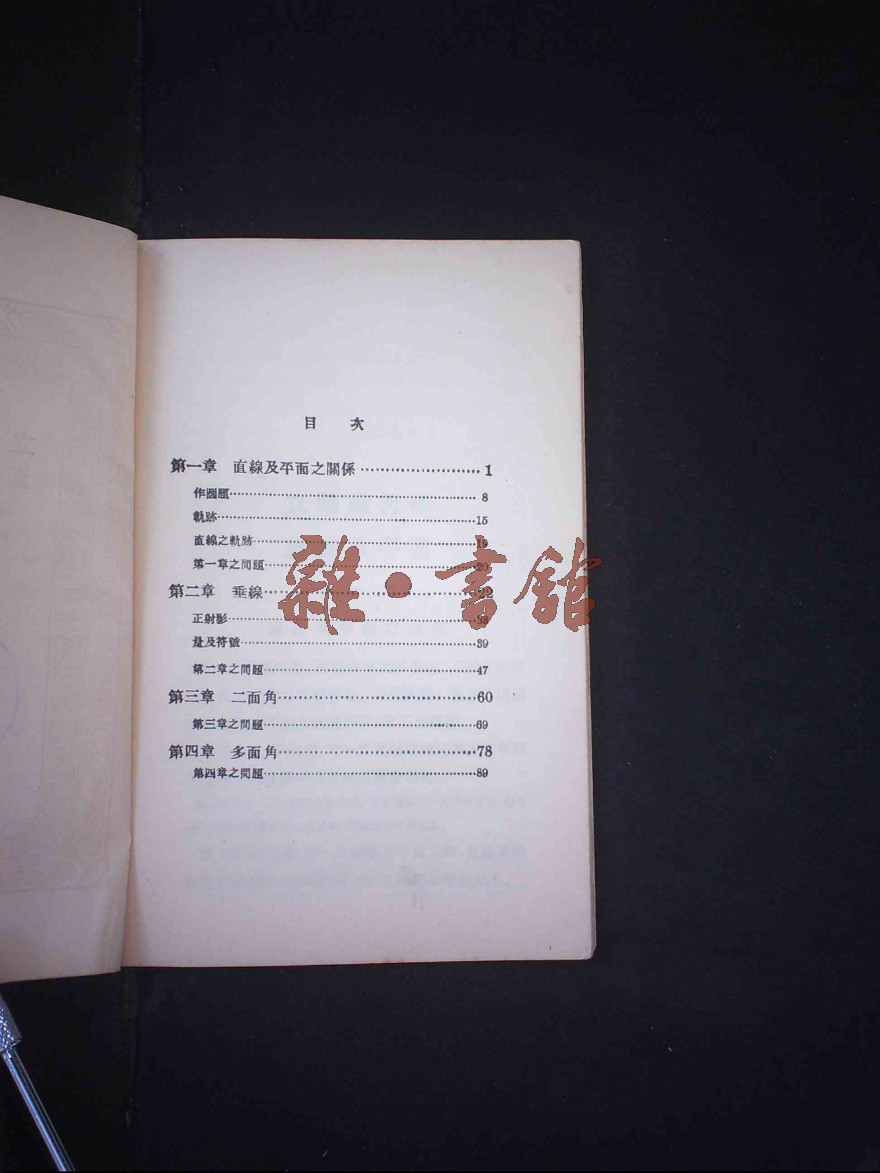 目 次
第一章 直線及平面之關係……………………1
作圖題……………………8
軌跡……………………15
直線之軌跡……………………19
第一章之問題……………………20
第二章 垂線……………………22
正射影……………………38
是及符號……………………39
第二章之問題……………………47
第三章 二面角……………………60
第三章之問題……………………69
第四章 多面角……………………78
第四章之問題……………………89
雜·書館